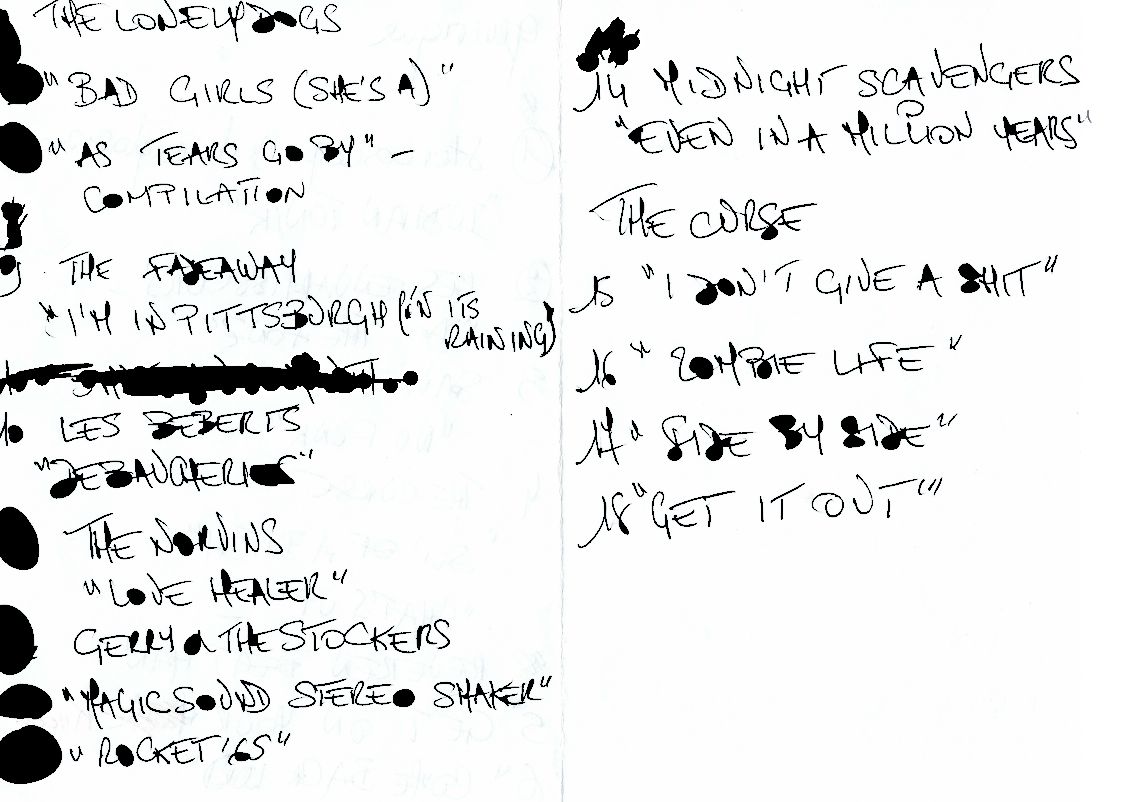 THE LONELY DOGS
"BAD GIRLS (SHE'S A)"
"AS TEARS GO BY" –
COMPILATION
THE FADEAWAY
"I'M IN PITTSBURGH (N ITS
RAINING)
LES BEBERTS
"DEBAUCHERIES"
THE NORVINS
"LOVE HEALER"
GERRY & THE STOCKERS
"MAGIC SOUND STEREO SHAKER"
"ROCKET '65"
14 MIDNIGHT SCAVENGERS
"EVEN IN A MILLION YEARS"
THE CURSE
15 "I DON'T GIVE A SHIT"
16 "ZOMBIE LIFE"
17 "SIDE BY SIDE"
18 "GET IT OUT"